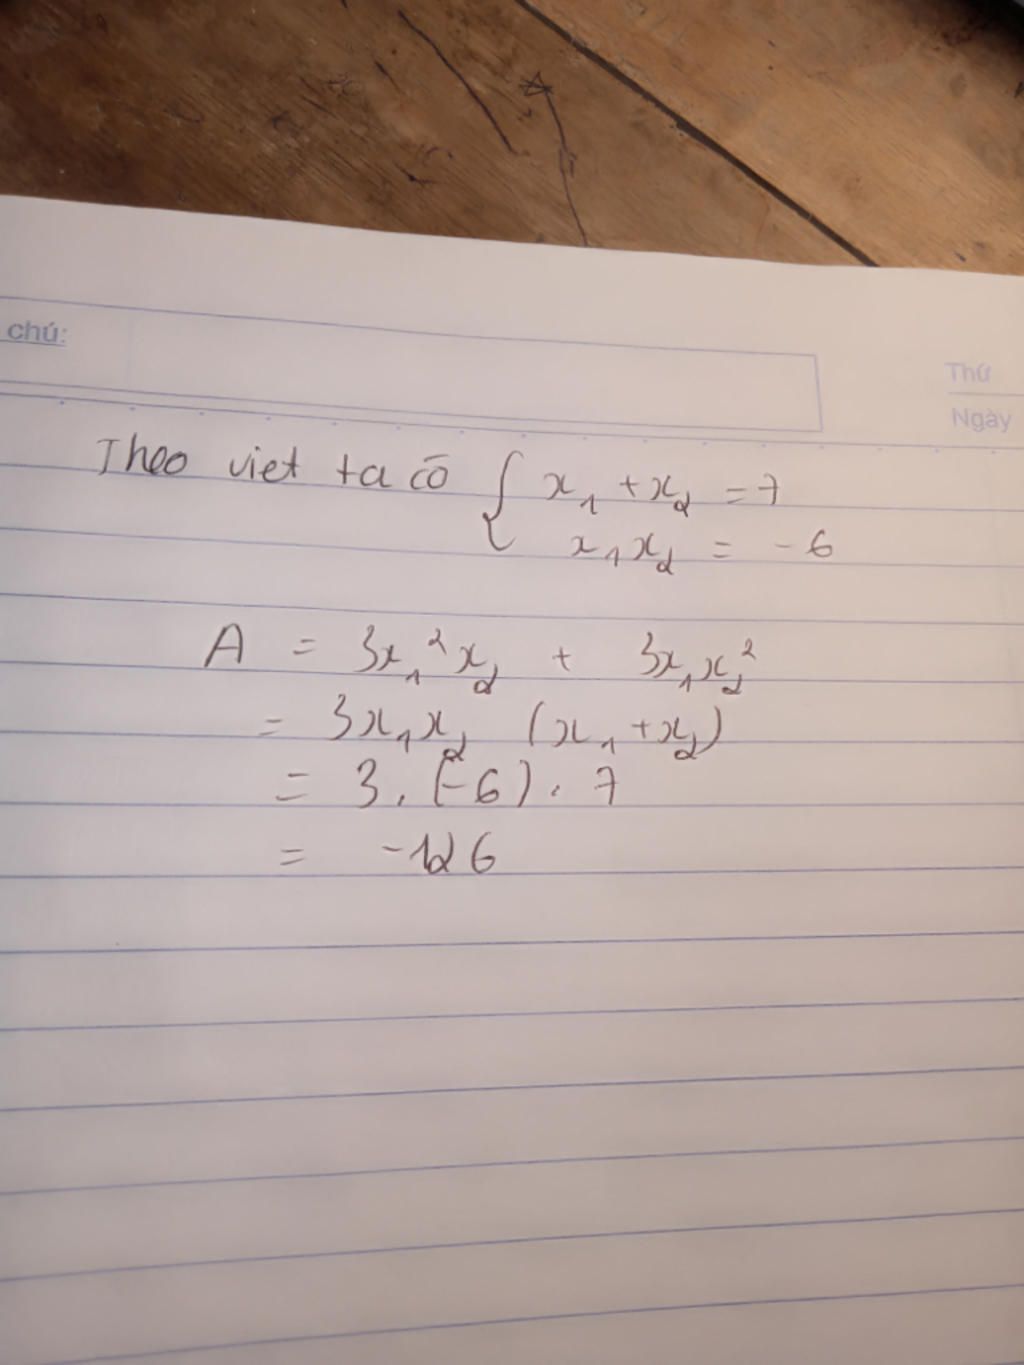 chú:
Thứ
Ngày
Theo viet ta có { x₁ + x₂ = 7
x₁x₂ = -6
A = 3x₁²x₂ + 3x₁x₂²
= 3x₁x₂ (x₁ + x₂)
= 3 . (-6) . 7
= -126